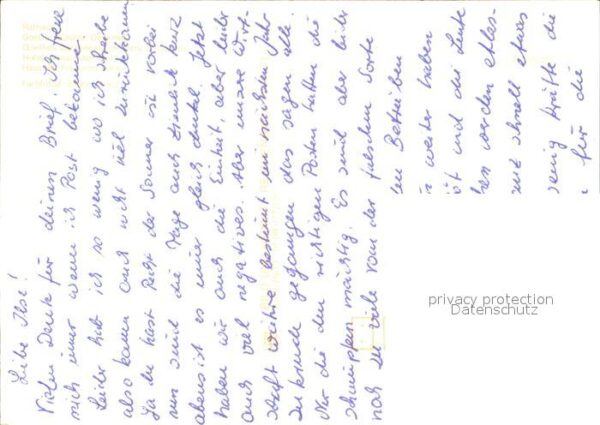 Liebe Ilse!
Vielen Dank für deinen Brief. Ich freue
mich immer wenn ich Post bekomme.
Leider hab ich so wenig wo ich schreibe
also kann auch nicht viel zurückkommen.
Ja du hast Recht der Sommer ist vorbei
nun sind die Tage auch ziemlich kurz
abens ist es immer gleich dunkel. Jetzt
haben wir auch die Einheit, aber leider
auch viel negatives. Aber unsere Wirt-
schaft wäre bestimmt im nächsten Jahr
zu Grunde gegangen das sagen alle.
Nur die den richtigen Posten hatten die
schimpfen mächtig. Es sind aber leider
noch zu viele von der falschen Sorte
den Betrieben
weiter haben
und die Leute
werden etlas-
schnell etwas
wenig Kräfte die
für die
privacy protection
Datenschutz